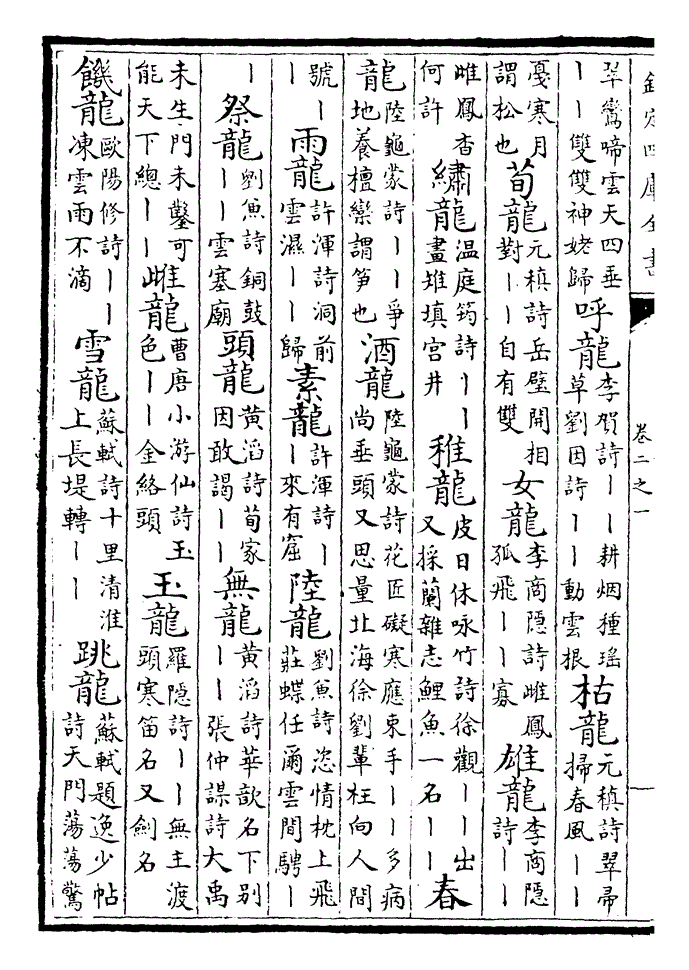 欽定四庫全書 卷二之一
翠鸞啼雲天四垂丨丨雙雙神姥歸 呼龍 李賀詩丨丨耕烟種瑶草劉因詩丨丨動雲根 枯龍 元稹詩翠帚掃春風丨丨
戛寒月謂松也 荀龍 元稹詩岳璧開相對丨丨自有雙 女龍 李商隠詩雌鳳孤飛丨丨寡 雄龍 李商隠詩丨丨
雌鳳杳何許 繡龍 温庭筠詩丨丨畫雉填宮井 稚龍 皮日休咏竹詩徐觀丨丨出又採蘭雜志鯉魚一名丨丨 春
龍 陸龜蒙詩丨丨爭地養檀欒謂笋也 酒龍 陸龜蒙詩花匠礙寒應束手丨丨多病尚垂頭又思量北海徐劉輩枉向人間
號丨丨 雨龍 許渾詩洞前雲濕丨丨歸 素龍 許渾詩丨丨來有窟 陸龍 劉兼詩恣情枕上飛莊蝶任爾雲間騁丨
丨 祭龍 劉兼詩銅鼓丨丨雲塞廟 頭龍 黄滔詩荀家因敢謁丨丨 無龍 黄滔詩華歆名下别丨丨張仲謀詩大禹
未生門未鑿可能天下總丨丨 雌龍 曹唐小游仙詩玉色丨丨金絡頭 玉龍 羅隠詩丨丨無主渡頭寒笛名又劍名
饑龍 歐陽修詩丨丨凍雲雨不滴 雪龍 蘇軾詩十里清淮上長堤轉丨丨 跳龍 蘇軾題逸少帖詩天門蕩蕩驚